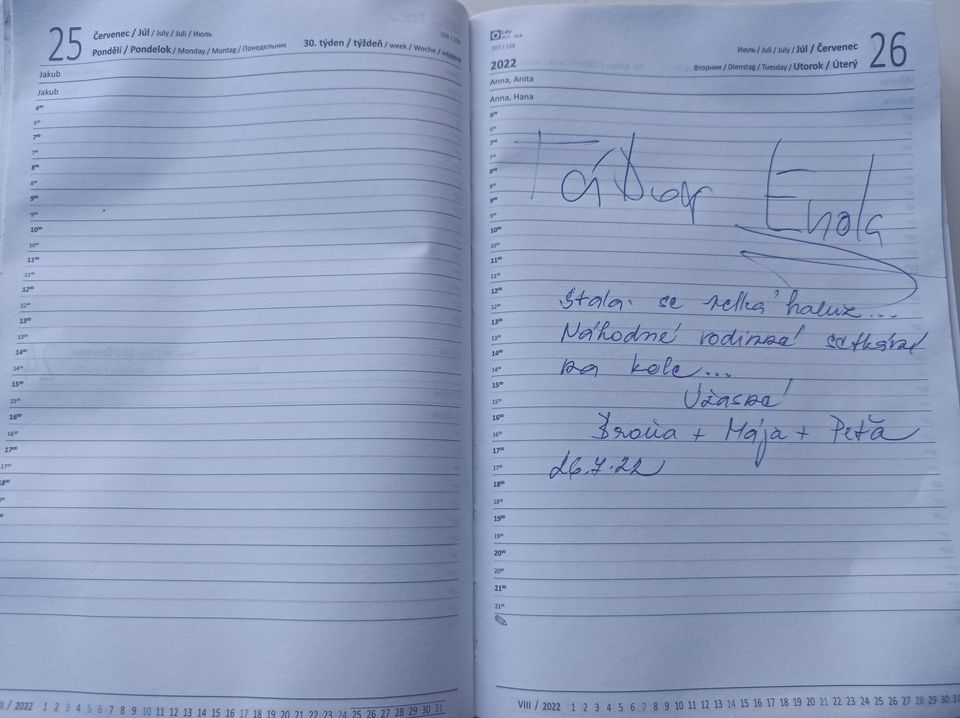 25
Červenec / Júl / July / Juli / Июль
Pondělí / Pondelok / Monday / Montag / Понедельник
30. týden / týždeň / week / Woche /
Jakub
Jakub
6⁰⁰
6³⁰
7⁰⁰
7³⁰
8⁰⁰
8³⁰
9⁰⁰
9³⁰
10⁰⁰
10³⁰
11⁰⁰
11³⁰
12⁰⁰
12³⁰
13⁰⁰
13³⁰
14⁰⁰
14³⁰
15⁰⁰
15³⁰
16⁰⁰
16³⁰
17⁰⁰
17³⁰
/ 2022 1 2 3 4 5 6 7 8 9 10 11 12 13 14 15 16 17 18 19 20 21 22 23 24 25 26 27 28 29 30 31
Lev
207 / 158
2022
Июль / Juli / July / Júl / Červenec
Вторник / Dienstag / Tuesday / Utorok / Úterý
26
Anna, Anita
Anna, Hana
6⁰⁰
6³⁰
7⁰⁰
7³⁰
8⁰⁰
8³⁰
9⁰⁰
9³⁰
10⁰⁰
10³⁰
11⁰⁰
11³⁰
12⁰⁰
12³⁰
13⁰⁰
13³⁰
14⁰⁰
14³⁰
15⁰⁰
15³⁰
16⁰⁰
16³⁰
17⁰⁰
17³⁰
18⁰⁰
18³⁰
19⁰⁰
19³⁰
20⁰⁰
20³⁰
21⁰⁰
21³⁰
Tábor Enola
Stala se velká haluz...
Náhodné rodinné setkání
na kole...
Úžasné
+ Mája + Peťa
26.7.22
VIII / 2022 1 2 3 4 5 6 7 8 9 10 11 12 13 14 15 16 17 18 19 20 21 22 23 24 25 26 27 28 29 30 31